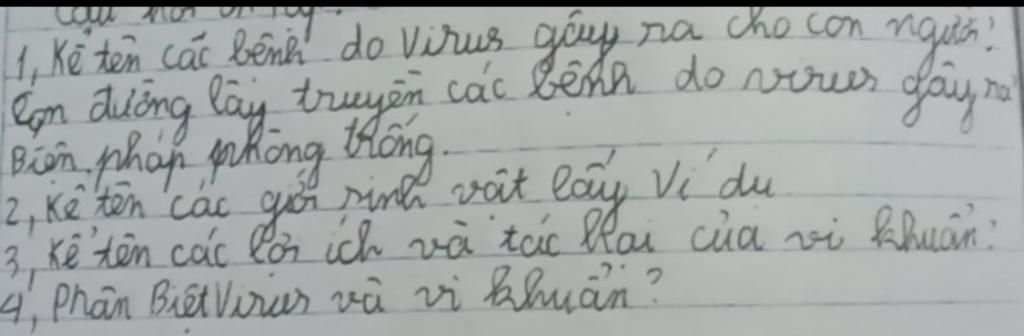 1, Kể tên các bệnh do Virus gây ra cho con người?
Con đường lây truyền các bệnh do virus gây ra
Biện pháp phòng chống.
2, Kể tên các giới sinh vật lấy Ví dụ
3, Kể tên các lợi ích và tác hại của vi khuẩn?
4, Phân Biệt Virus và vi khuẩn?